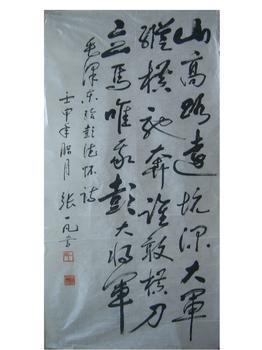 山高路遠坑深大軍
縱橫馳奔誰敢橫刀
立馬唯我彭大將軍
毛澤東給彭德懷詩
壬申年腊月 張一凡書